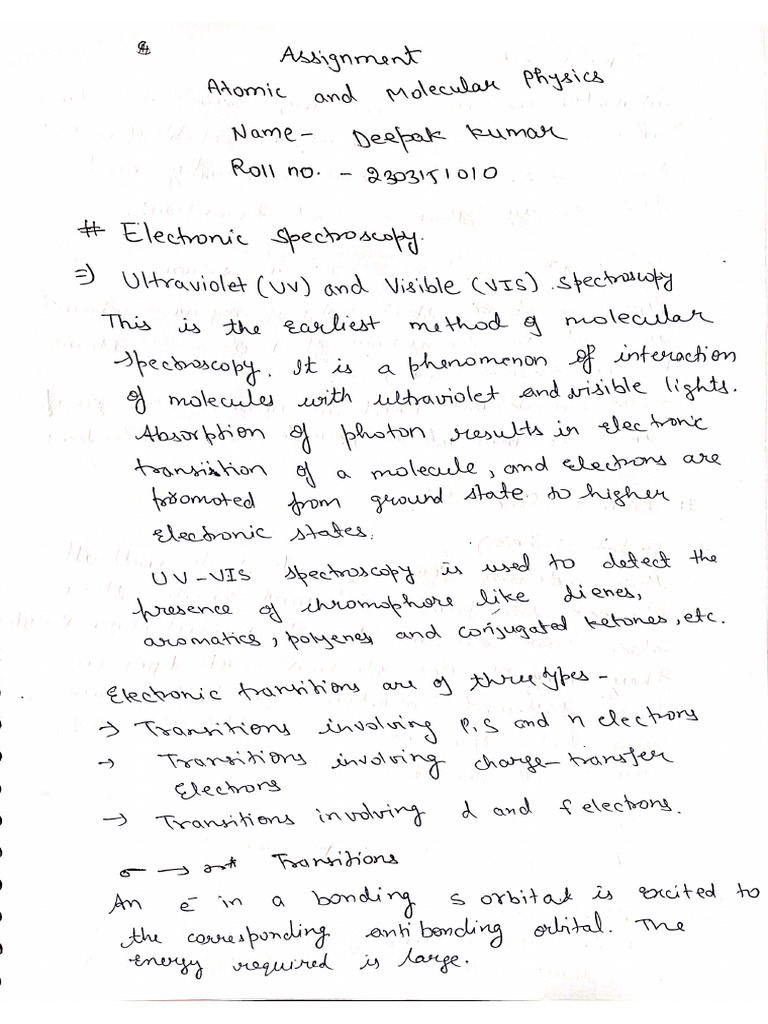 Assignment
Atomic and Molecular Physics
Name- Deepak Kumar
Roll no. - 2303151010
# Electronic Spectroscopy.
=) Ultraviolet (UV) and Visible (VIS) . Spectroscopy
This is the earliest method of molecular
spectroscopy. It is a phenomenon of interaction
of molecules with ultraviolet and visible lights.
Absorption of photon results in electronic
transistion of a molecule, and electrons are
promoted from ground state to higher
electronic states.
UV-VIS spectroscopy is used to detect the
presence of chromophore like dienes,
aromatics, polyenes and conjugated ketones, etc.
Electronic transitions are of three types -
→ Transitions involving P, S and n electrons
→ Transitions involving charge-transfer
Electrons
→ Transitions involving d and f electrons.
σ → σ* Transitions
An e⁻ in a bonding s orbital is excited to
the corresponding antibonding orbital. The
energy required is large.